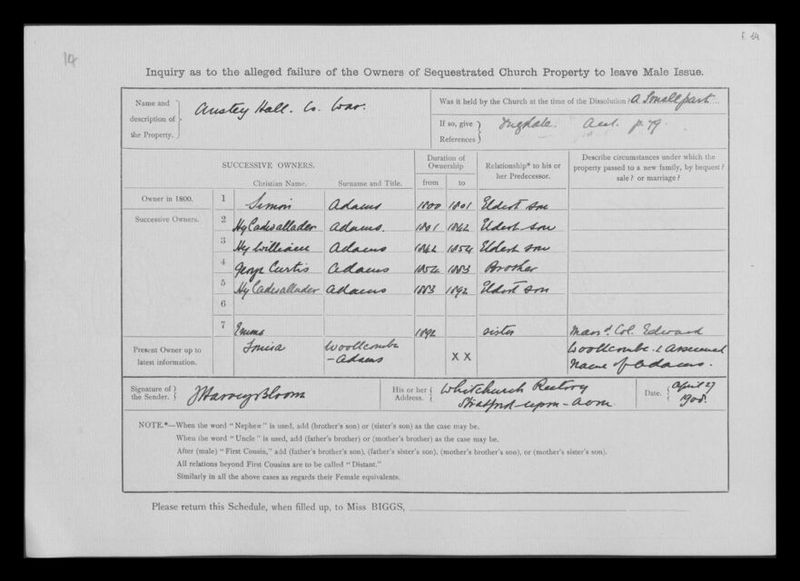 14
f. 14
Inquiry as to the alleged failure of the Owners of Sequestrated Church Property to leave Male Issue.
Name and description of the Property. } Anstey Hall. Co. War.
Was it held by the Church at the time of the Dissolution? A Small part
If so, give References } Dugdale. p. 79.
SUCCESSIVE OWNERS.
Christian Name. Surname and Title.
Duration of Ownership
from to
Relationship* to his or her Predecessor.
Describe circumstances under which the property passed to a new family, by bequest? sale? or marriage?
Owner in 1800. 1 Simon Adams 1800 1801 Eldest son
Successive Owners. 2 Hy Cadwallader Adams. 1801 1842 Eldest son
3 Hy William Adams 1842 1852 Eldest son
4 George Curtis Adams 1852 1883 Brother
5 Hy Cadwallader Adams 1883 1892 Eldest son
6
7 Emma 1892 sister Marrd. Col. Edward
Present Owner up to latest information. Louisa Woollcombe-Adams X X Woollcombe & assumed name of Adams.
Signature of the Sender. } J Harvey Bloom
His or her Address. { Whitchurch Rectory Stratford-upon-Avon
Date. { April 27 1908.
NOTE.*—When the word "Nephew" is used, add (brother's son) or (sister's son) as the case may be.
When the word "Uncle" is used, add (father's brother) or (mother's brother) as the case may be.
After (male) "First Cousin," add (father's brother's son), (father's sister's son), (mother's brother's son), or (mother's sister's son).
All relations beyond First Cousins are to be called "Distant."
Similarly in all the above cases as regards their Female equivalents.
Please return this Schedule, when filled up, to Miss BIGGS,